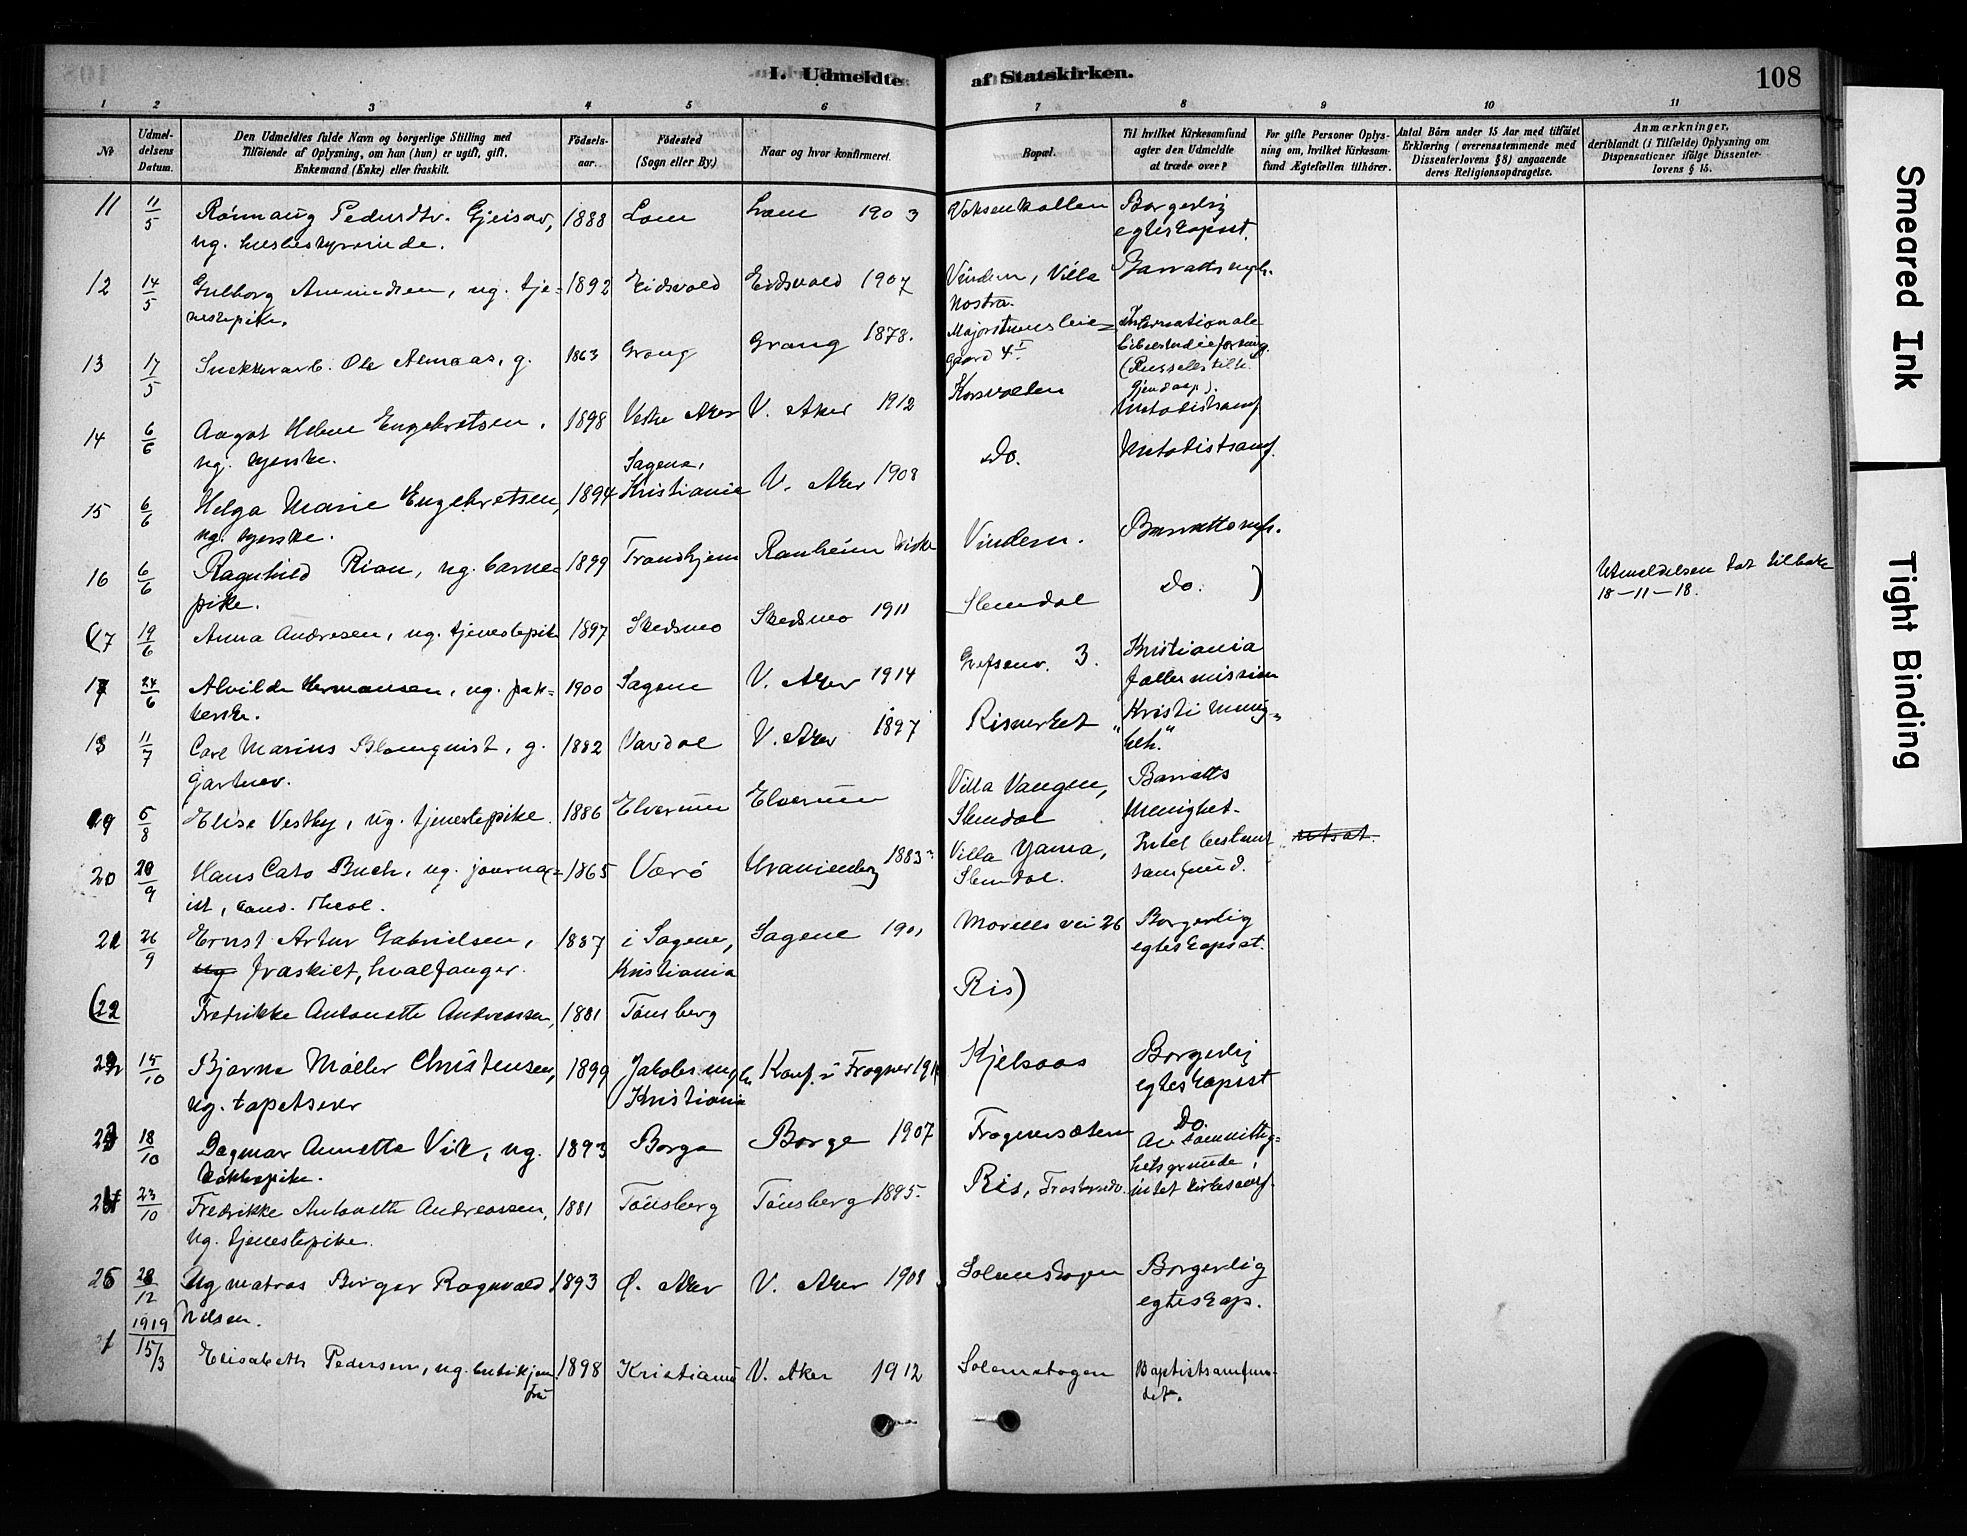 I. Udmeldte af Statskirken.
108
1 2 3 4 5 6 7 8 9 10 11
№
Udmeldelsens Datum.
Den Udmeldtes fulde Navn og borgerlige Stilling med
Tilføiende af Oplysning, om han (hun) er ugift, gift,
Enkemand (Enke) eller fraskilt.
Fødselsaar.
Fødested
(Sogn eller By).
Naar og hvor konfirmeret.
Bopæl.
Til hvilket Kirkesamfund
agter den Udmeldte
at træde over?
For gifte Personer Oplysning om, hvilket Kirkesamfund Ægtefællen tilhører.
Antal Børn under 15 Aar med tilføiet
Erklæring (overensstemmende med
Dissenterlovens § 8) angaaende
deres Religionsopdragelse.
Anmærkninger,
deriblandt (i Tilfælde) Oplysning om
Dispensationer ifølge Dissenterlovens § 15.
11 11/5 Pedersdtr. 1888 Lom Lom 1903 Voksenkollen Borgerlig
ug. egteskapsst.
12 14/5 Gulborg Amundsen, ug. tje= 1892 Eidsvold Eidsvold 1907 Vindern, Villa
nestepike. Nostra.
13 17/5 Snekkerarb. Ole g. 1863 Grong Grong 1878. Internationale
gaard 4 I
14 6/6 Aagot Helene Engebretsen, 1898 Vestre Aker V. Aker 1912 Korsvolden Metodistsamf.
ug. syerske.
15 6/6 Helga Marie Engebretsen, 1894 Sagene, Kristiania V. Aker 1908 Do. Metodistsamf.
ug. syerske.
16 6/6 Ragnhild Rian, ug. barne= 1899 Trondhjem Ranheim kirke Vindern. Barratts mgh.
pike.
Utmeldelsen tat tilbake
18-11-18.
(17 19/6 Anna Andresen, ug. tjenestepike 1897 Skedsmo Skedsmo 1911 Slemdal Do. )
17 24/6 Alvilde Hermansen, ug. pak= 1900 Sagene V. Aker 1914 Grefsenv. 3. Kristiania
kerske. fællesmission
18 11/7 Carl Marius Blomquist, g. 1882 Vardal V. Aker 1897 Risverket "Kristi menig=
Gartner. het."
19 6/8 Elise Vestby, ug. tjenestepike. 1886 Elverum Elverum Villa Vangen, Barratts
Slemdal Menighet.
20 28/9 Hans Cato Buch, ug. journal= 1865 Værø Uranienborg 1883 Villa Yama, Intet bestemt
ist, cand. theol. Slemdal. samfund.
utsat.
21 26/9 Ernst Artur Gabrielsen, 1887 i Sagene, Sagene 1901 Morells vei 26 Borgerlig
ug fraskilt, hvalfanger. Kristiania egteskapsst.
(22 Fredrikke Antonette Andreassen, 1881 Tønsberg Ris)
22 15/10 Bjarne Møller Christensen, 1899 Jakobs mgh. Konf. i Frogner Kjelsaas Borgerlig
ug. tapetserer Kristiania egteskapsst
23 18/10 Dagmar Annette Vik, ug. 1893 Borge Borge 1907 Frognersæteren Do.
kokkepike.
24 23/10 Fredrikke Antonette Andreassen, 1881 Tønsberg Tønsberg 1895. Ris, Av samvittig=
ug. tjenestepike. hetsgrunde,
intet kirkesamf.
25 28/12 Ug matros Birger Ragnvald 1893 Ø. Aker V. Aker 1908 Solemskogen Borgerlig
Nilsen. egteskap.
1919
1 15/3 Elisabeth Pedersen, ug. butikjom= 1898 Kristiania V. Aker 1912 Solemskogen Baptistsamfun=
fru det.
Smeared Ink
Tight Binding